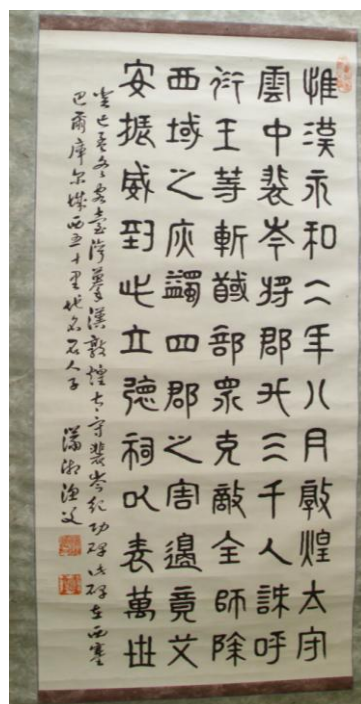 惟漢永和二年八月敦煌太守
雲中裴岑将郡兵三千人誅呼
衍王等斬馘部眾克敵全師除
西域之灰蠲四郡之害邊竟艾
安振威到此立德祠以表萬世
癸巳孟冬客臺灣摹漢敦煌太守裴岑紀功碑此碑在西塞
巴爾庫尔城西五十里地名石人子 瀟湘漁父